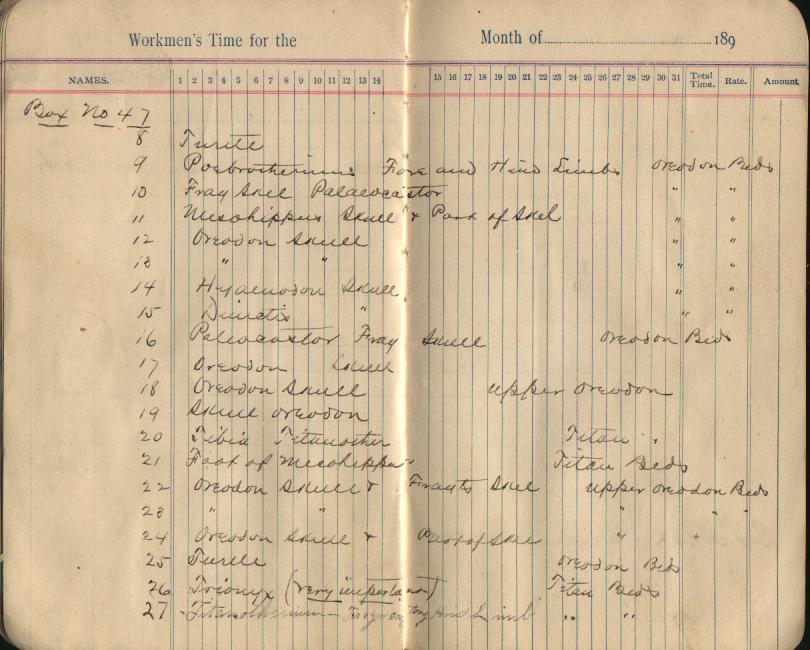 Workmen's Time for the Month of 189
NAMES. 1 2 3 4 5 6 7 8 9 10 11 12 13 14 15 16 17 18 19 20 21 22 23 24 25 26 27 28 29 30 31 Total Time. Rate. Amount
Box No 47
8 Turtle
9 Poebrotherium Fore and Hind Limbs Oreodon Beds
10 Frag Skel Palaeocastor " "
11 Mesohippus Skull & Part of Skel " "
12 Oreodon Skull " "
13 " " " "
14 Hyaenodon Skull " "
15 Dinictis " " "
16 Paleocastor Frag Skull Oreodon Beds
17 Oreodon Skull
18 Oreodon Skull upper Oreodon
19 Skull Oreodon
20 Tibia Titanother Titan "
21 Foot of Mesohippus Titan Beds
22 Oreodon Skull & Fragts Skel upper Oreodon Beds
23 " " " " "
24 Oreodon Skull & Part of Skel " "
25 Turtle Oreodon Beds
26 Trionyx (very important) Titan Beds
27 Titanotherium Hind Limb " "